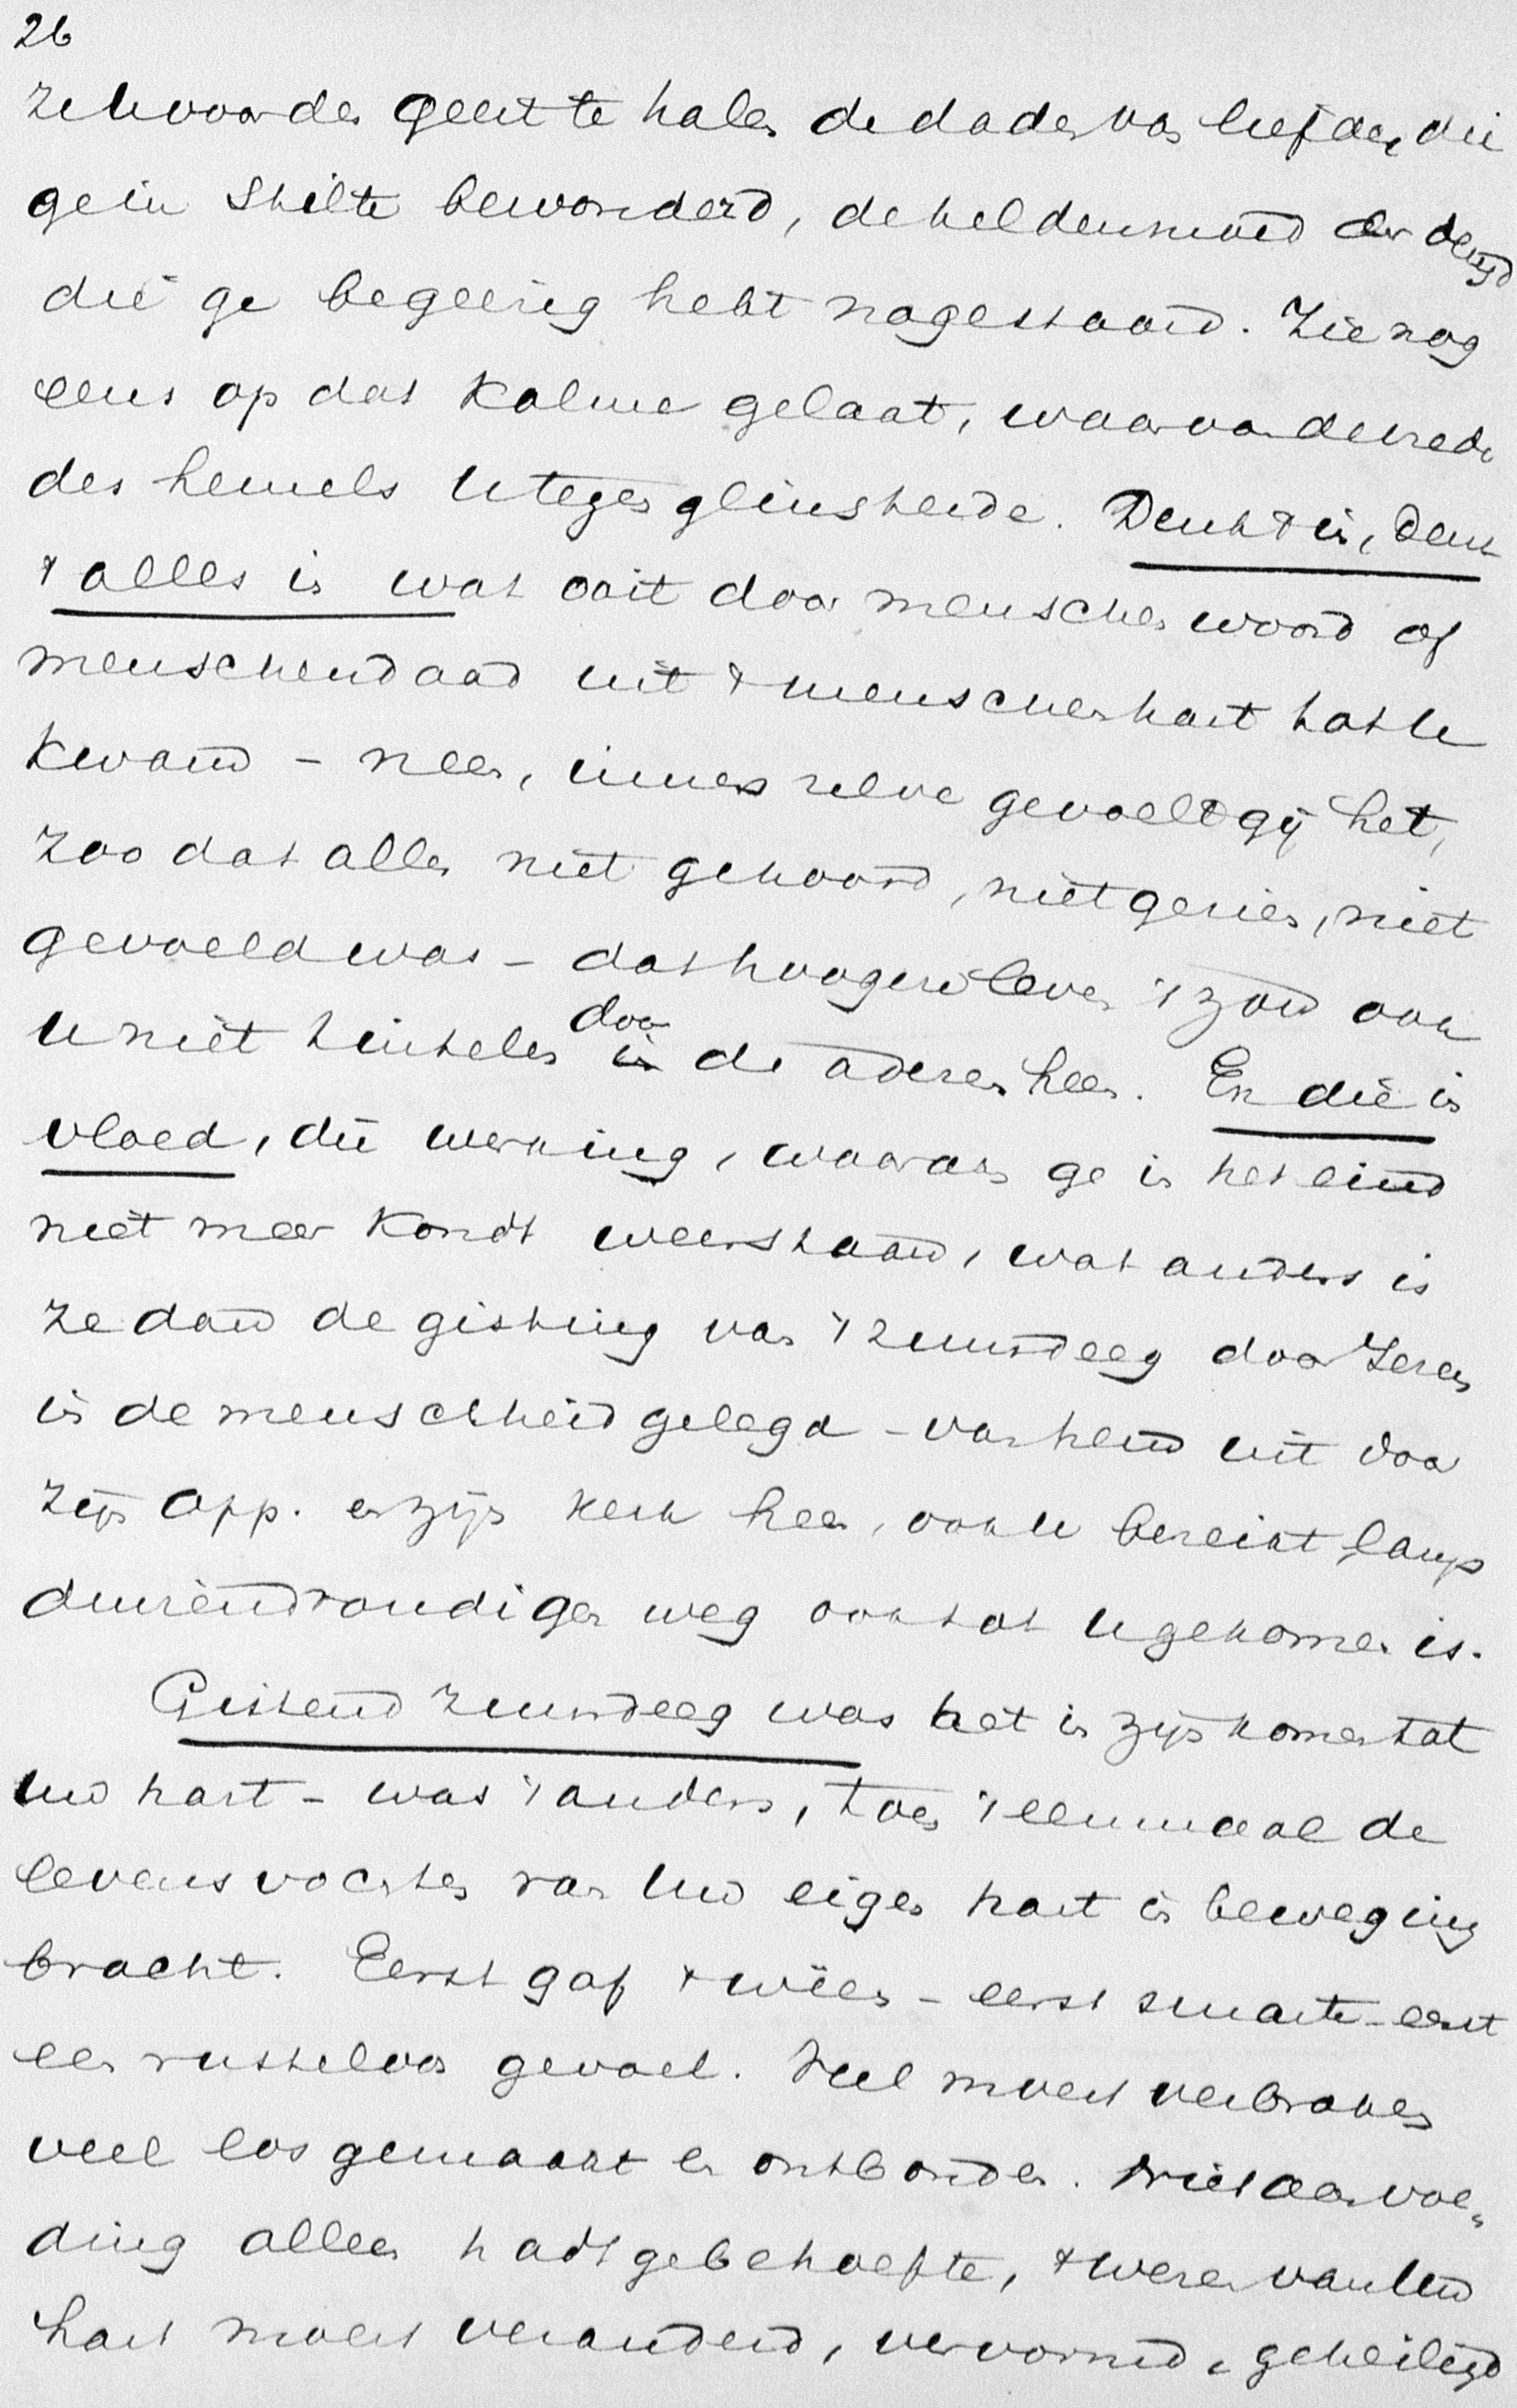 26
ze voor den geest te halen de daden van liefde, die
ge in stilte bewonderd, de heldenmoed en deugd
die ge begeerig hebt nagestaard. Zie nog
eens op dat kalme gelaat, waarvan de vrede
des hemels U tegen glinsterde. Denkt in, denk
't alles in wat ooit door menschenwoord of
menschendaad uit 't menschenhart tot U
kwam – neen, immers zelve gevoelt gij het,
zoo dat alles niet gehoord, niet gezien, niet
gevoeld was – dat hoogere leven 't zou ook
U niet tintelen door de aderen heen. En die in
vloed, die werking, waaraan ge in het eind
niet meer kondt weerstaan, wat anders is
ze dan de gisting van 't zuurdeeg door Jezus
in de menschheid gelegd – van hem uit door
zijn App. en zijn kerk heen, ook U bereikt langs
duizendvoudigen weg ook tot U gekomen is.
Gistend zuurdeeg was het in zijn komen tot
Uw hart – was 't anders, toen 't eenmaal de
levensvochten van Uw eigen hart in beweging
bracht. Eerst gaf 't wëen – eerst smarte – eerst
een rusteloos gevoel. Veel moest verbroken
veel losgemaakt en ontbonden. Niet aan voe„
ding alleen hadt ge behoefte, 't wezen van Uw
hart moest veranderd, vervormd, geheiligd